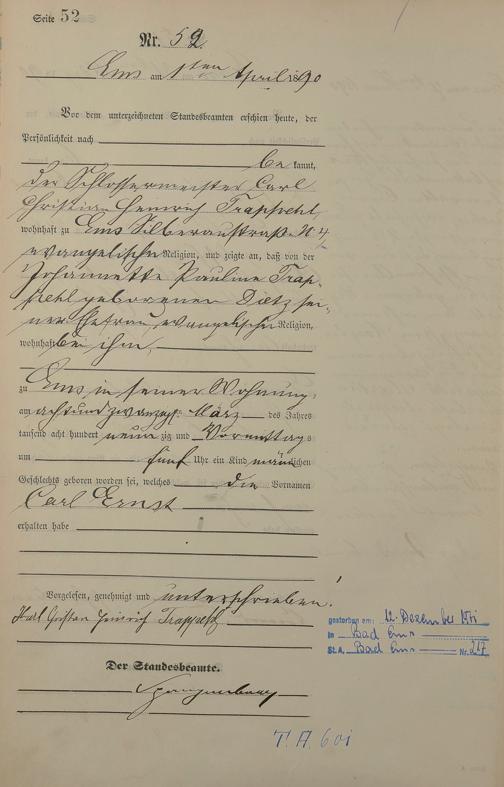 Seite 52
Nr. 52.
Ems am 1ten April 1890
Vor dem unterzeichneten Standesbeamten erschien heute, der
Persönlichkeit nach
bekannt,
der Schlossermeister Carl
Christian Heinrich Trappehl,
wohnhaft zu Ems Silberaustraße N 4
evangelischer Religion, und zeigte an, daß von der
Johannette Pauline Trap-
pehl geborenen Dætz sei-
ner Ehefrau, evangelischer Religion,
wohnhaft bei ihm,
zu Ems in seiner Wohnung,
am achtundzwanzigst März des Jahres
tausend acht hundert neunzig und Vormittags
um fünf Uhr ein Kind männlichen
Geschlechts geboren worden sei, welches die Vornamen
Carl Ernst
erhalten habe
Vorgelesen, genehmigt und unterschrieben.
Karl Heinrich Trappehl
gestorben am: 12. Dezember
in Bad Ems
St.A. Bad Ems Nr. 217
Der Standesbeamte.
Spangenberg
T. A. 601